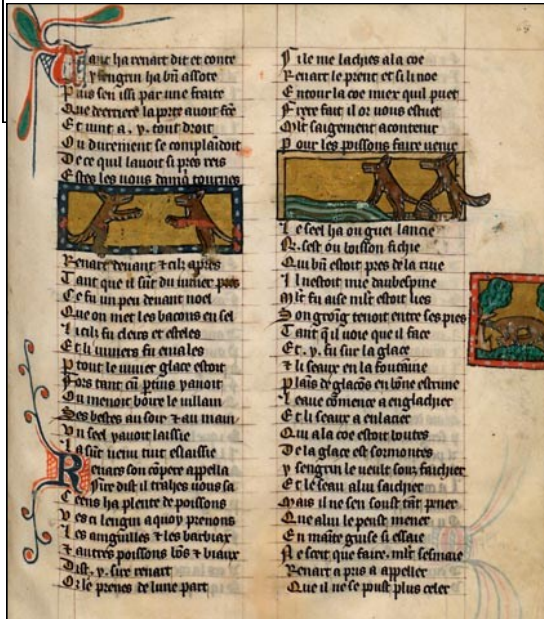 Tant ha renart dit et conte
Q̃ yengrin ha bñ assote
Puis sen issi par une fraite
Que derriere la porte avoit fẽe
Et vint a .y. tout droit
Ou durement se complaĩdoit
De ce quil lavoit si pres reis
Estes les vous damq̃ tournes
Renart devant ⁊ cil apres
Tant que il sũt du vivier pres
Ce fu un peu devant noel
Que on met les bacons en sel
Li ciel fu clers et esteles
Et li viviers fu engales
Ptout le vivier glace estoit
Fors tant cũ ptius yavoit
Ou menoit boire le villain
Ses bestes au soir ⁊ au main
Un seel yavoit laissie
La sũt venu tuit eslaissie
Renars son cõpere appella
Sire dist il trahes vous sa
Ceens ha plente de poissons
Vesci lengin a quoy prenons
Les anguilles ⁊ les barbiax
⁊ autres poissons bõs ⁊ biaux
Dist .y. sire renart
Or le prenes de lune part
Si le me lachies a la coe
Renart le prent et si li noe
Entour la coe miex quil puet
Frere fait il or vous estuet
Mlt saigement acontenir
Pour les poissons faire venir
Le seel ha ou guei lancie
.R. sest ou boisson fichie
Qui bñ estoit pres de la rive
Il nestoit mie daubespine
Mlt fu aise mlt estoit lies
Son groĩg tenoit entre ses pies
Tant q̃ il voie que il face
Et .y. fu sur la glace
⁊ li seaux en la fontaine
Plaĩs de glacõs en bõne estrine
Leaue cõmence a englachier
Et li seaux a enlacier
Qui a la coe estoit boutes
De la glace est sormontes
ysengrin le veult souz saichier
Et le seau a lui saichier
Mais il ne sen soust tãt pner
Que a lui le peust mener
En maĩte guise si essaie
Ne scet que faire mlt sesmaie
Renart a pris a appeller
Que il ne se poust plus celer